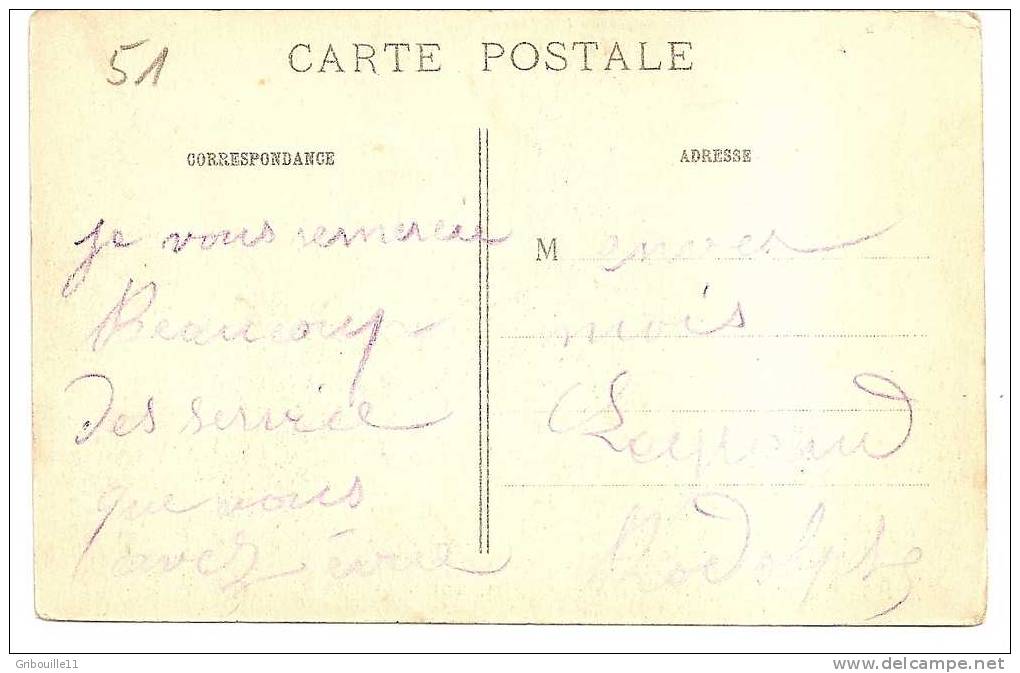 51
CARTE POSTALE
CORRESPONDANCE
je vous remercie
Beaucoup
des service
que vous
avez
ADRESSE
M envers
mois
Rodolphe
Gribouille11
www.delcampe.net